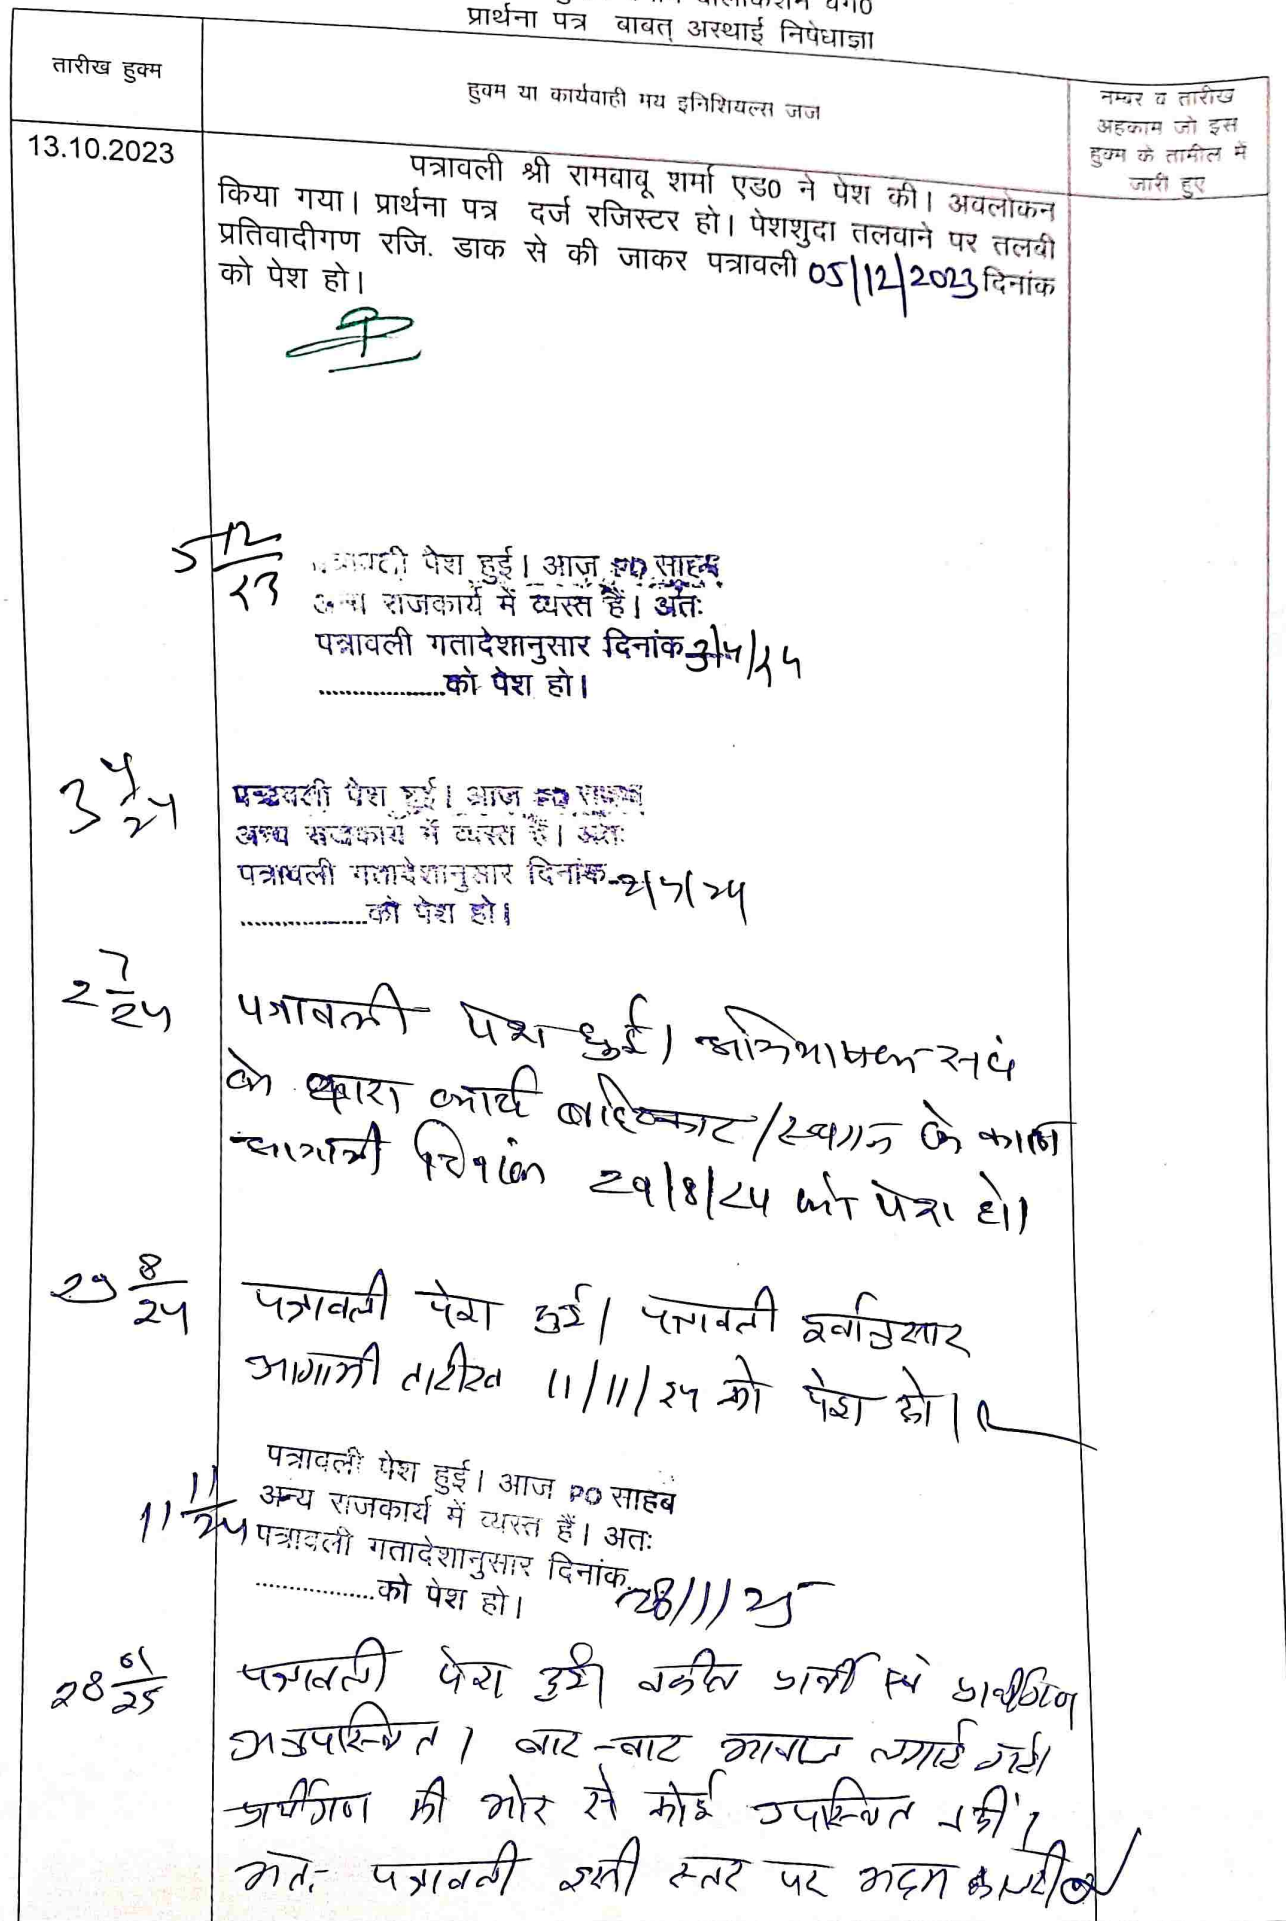 प्रार्थना पत्र बाबत् अस्थाई निषेधाज्ञा
तारीख हुक्म
हुक्म या कार्यवाही मय इनिशियल्स जज
नम्बर व तारीख
अहकाम जो इस
हुक्म के तामील में
जारी हुए
13.10.2023
पत्रावली श्री रामबाबू शर्मा एड0 ने पेश की। अवलोकन
किया गया। प्रार्थना पत्र दर्ज रजिस्टर हो। पेशशुदा तलवाने पर तलबी
प्रतिवादीगण रजि. डाक से की जाकर पत्रावली 05/12/2023 दिनांक
को पेश हो।
5 12/23
पत्रावली पेश हुई। आज PO साहब
अन्य राजकार्य में व्यस्त हैं। अतः
पत्रावली गतादेशानुसार दिनांक 3/4/24
..................को पेश हो।
3 4/24
पत्रावली पेश हुई। आज PO साहब
अन्य राजकार्य में व्यस्त हैं। अतः
पत्रावली गतादेशानुसार दिनांक 2/7/24
..................को पेश हो।
2 7/24
पत्रावली पेश हुई। अभिभाषक संघ
के द्वारा कार्य बहिष्कार/स्थगन के कारण
आगामी दिनांक 29/8/24 को पेश हो।
29 8/24
पत्रावली पेश हुई। पत्रावली पूर्वानुसार
आगामी तारीख 11/11/24 को पेश हो।
11 11/24
पत्रावली पेश हुई। आज PO साहब
अन्य राजकार्य में व्यस्त हैं। अतः
पत्रावली गतादेशानुसार दिनांक 28/1/25
.................को पेश हो।
28 01/25
पत्रावली पेश हुई। वकील प्रार्थी एवं प्रार्थीगण
अनुपस्थित। बार-बार आवाज लगाई गई।
प्रार्थीगण की ओर से कोई उपस्थित नहीं।
अतः पत्रावली इसी स्तर पर अदम